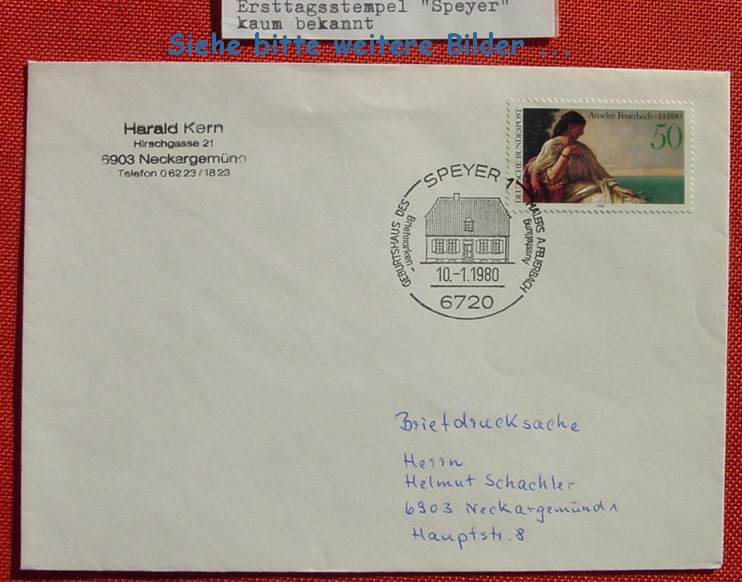 Ersttagsstempel "Speyer"
kaum bekannt
Siehe bitte weitere Bilder ...
Harald Kern
Hirschgasse 21
6903 Neckargemünd
Telefon 0 62 23 / 18 23
Anselm Feuerbach + 4.1.1880
50
DEUTSCHE BUNDESPOST
SPEYER 1
GEBURTSHAUS DES MALERS A. FEUERBACH
Briefmarken-
Ausstellung
10.-1.1980
6720
Briefdrucksache
Herrn
Helmut Schachler
6903 Neckargemünd 1
Hauptstr. 8